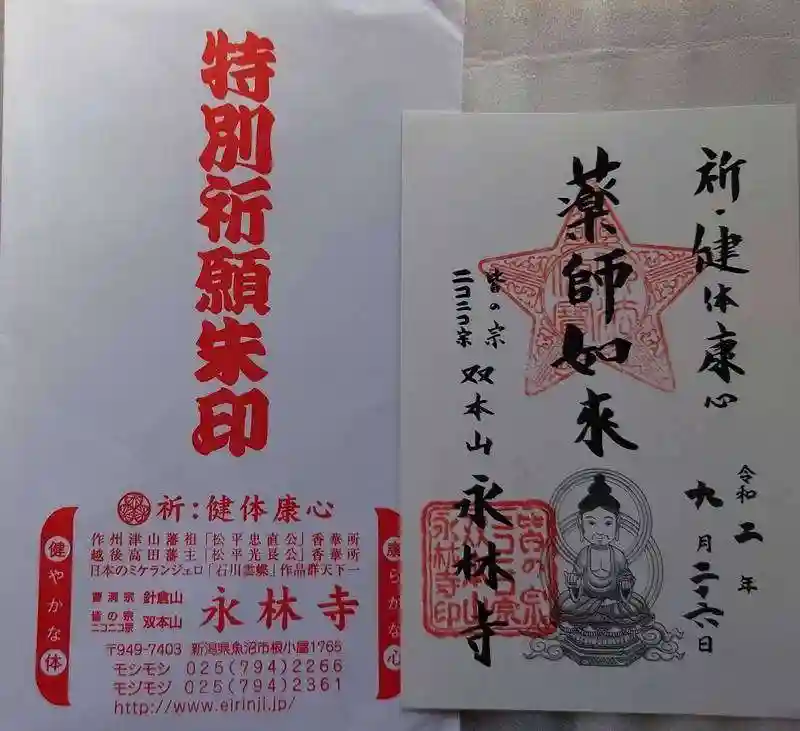 特別祈願朱印
祈:健体康心
作州津山藩祖「松平忠直公」香華所
越後高田藩主「松平光長公」香華所
日本のミケランジェロ「石川雲蝶」作品群天下一
曹洞宗 針倉山
皆の宗
ニコニコ宗 双本山
永林寺
〒949-7403 新潟県魚沼市根小屋1765
モシモシ 025(794)2266
モジモジ 025(794)2361
http://www.eirinji.jp/
健やかな体
康らかな心
祈・健体康心
令和二年
九月二十六日
薬師如来
皆の宗
ニコニコ宗
双本山
永林寺
皆の宗
ニコニコ宗
双本山
永林寺印